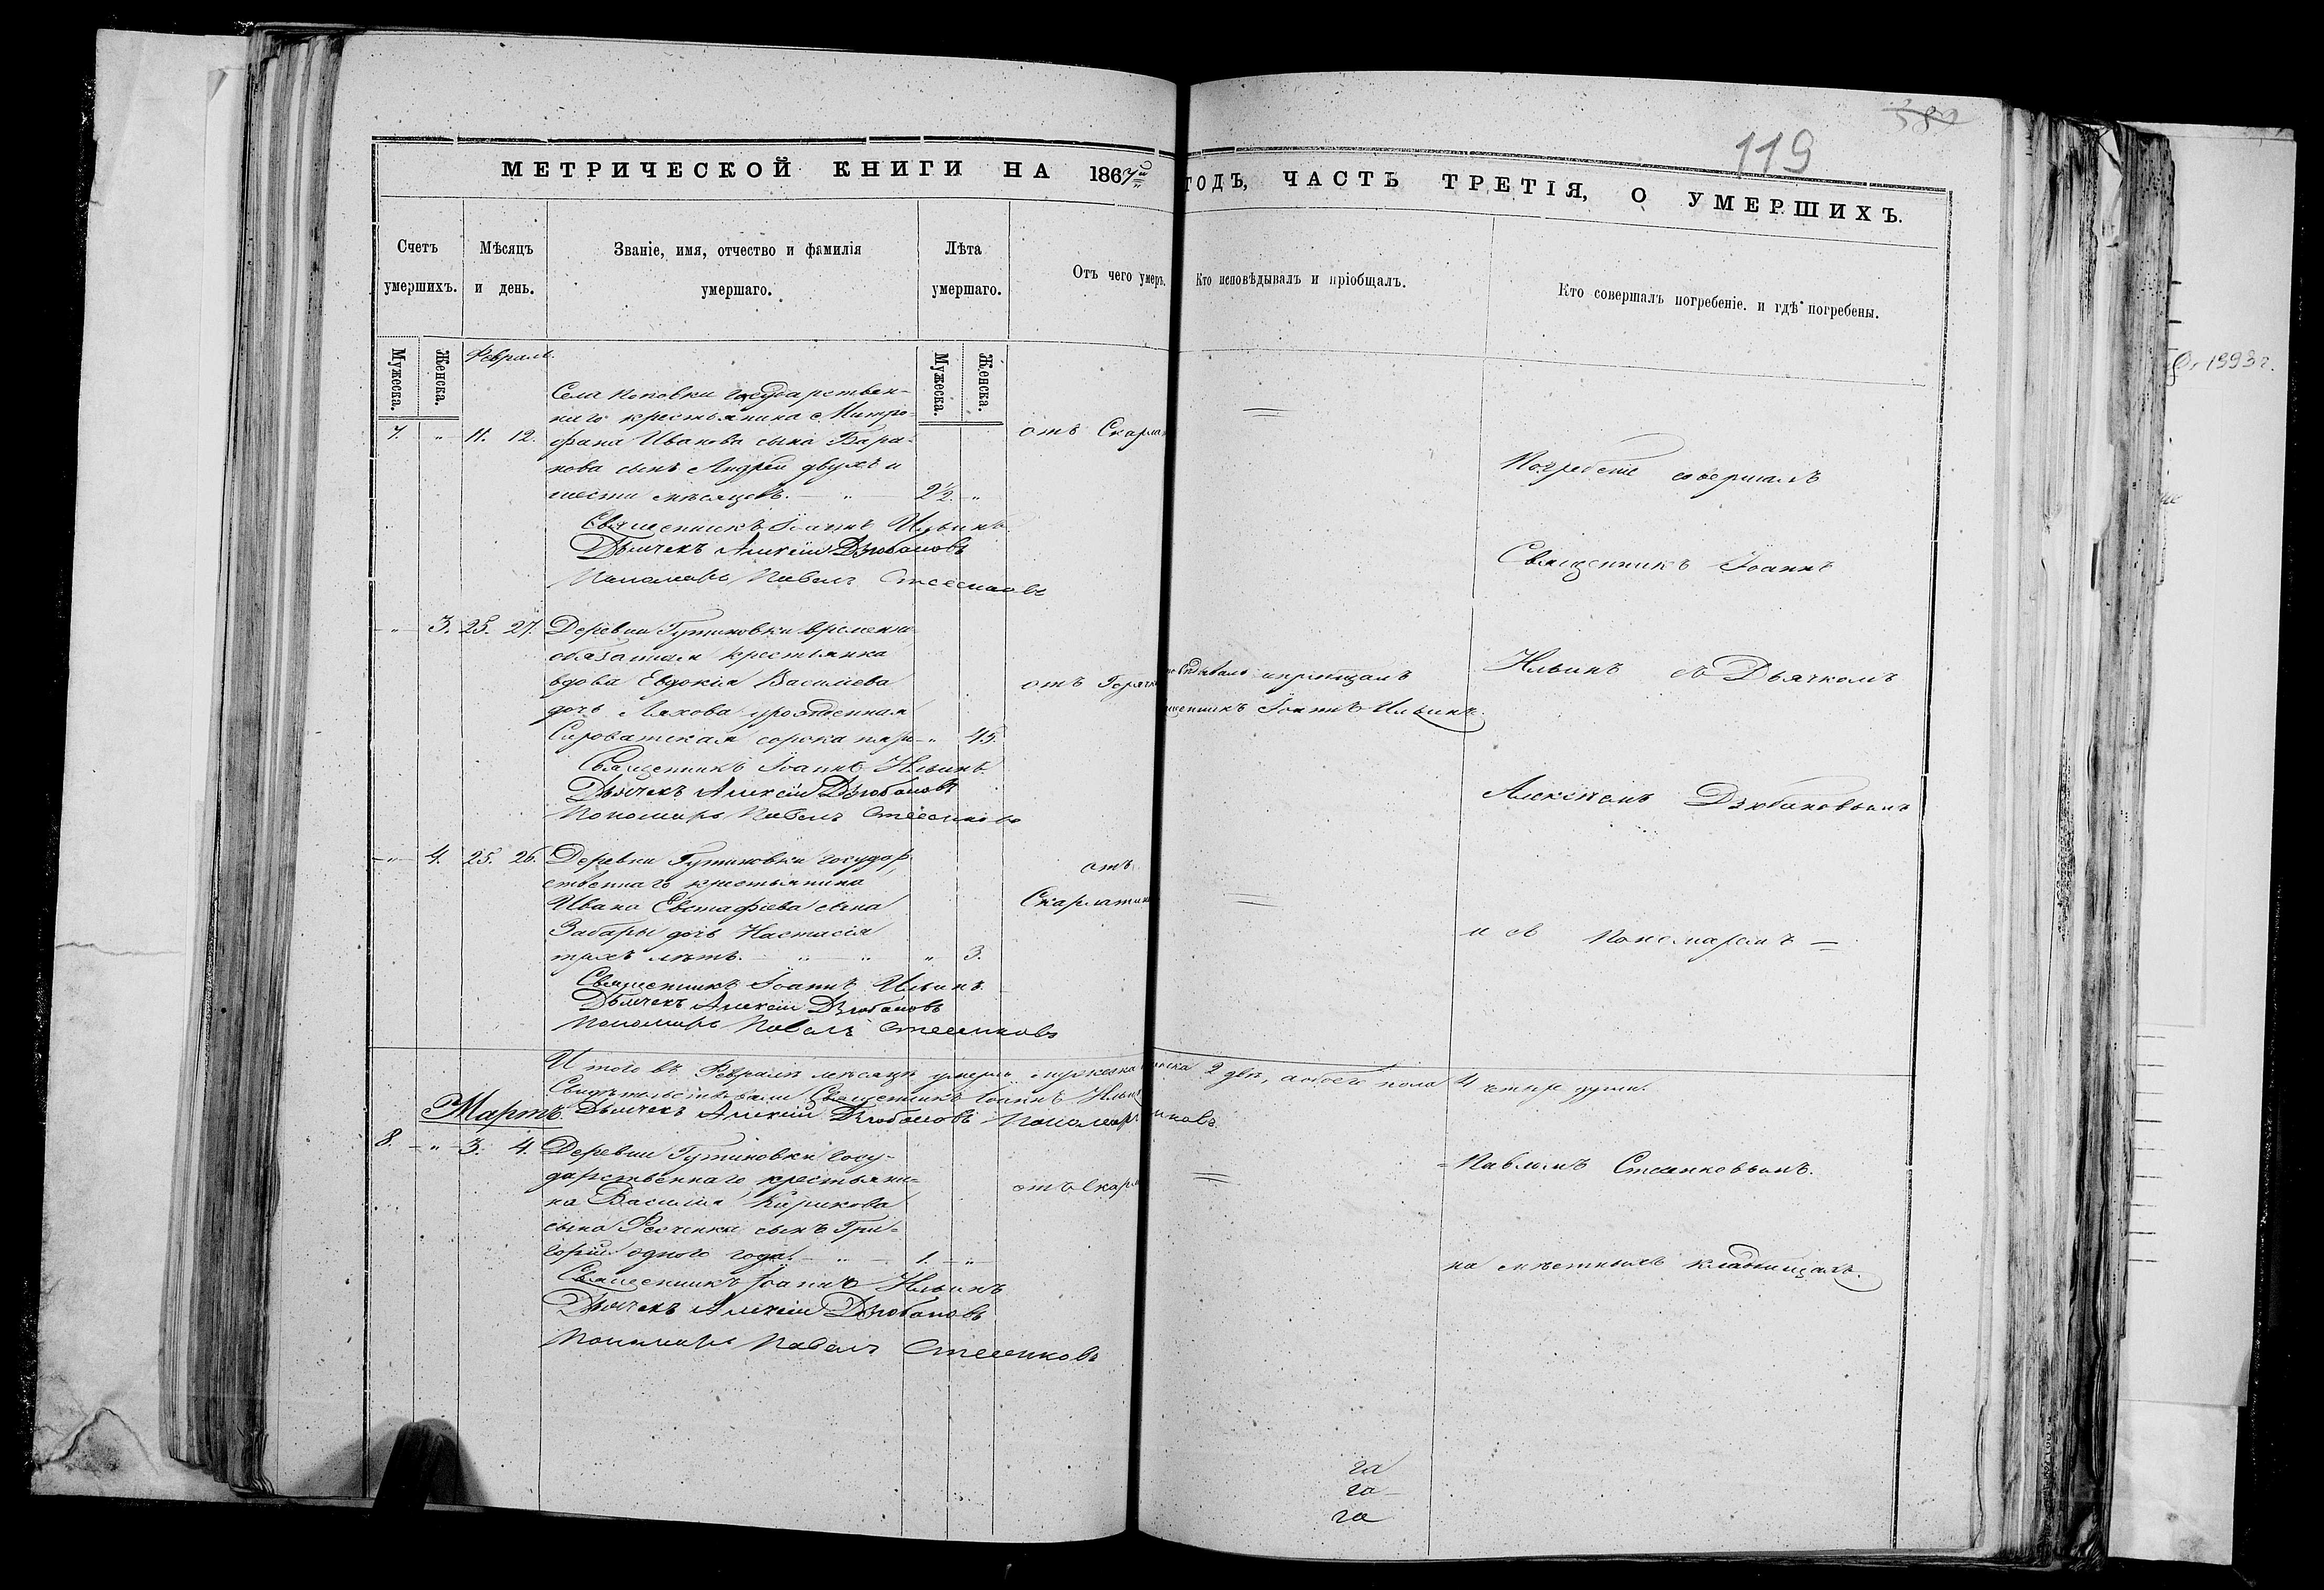 382
119
МЕТРИЧЕСКОЙ КНИГИ НА 1867й ГОДЪ, ЧАСТЬ ТРЕТІЯ, О УМЕРШИХЪ.
Счетъ умершихъ.
Мѣсяцъ и день.
Званіе, имя, отчество и фамилія умершаго.
Лѣта умершаго.
Отъ чего умеръ.
Кто исповѣдывалъ и пріобщалъ.
Кто совершалъ погребеніе. и гдѣ погребены.
Мужеска. Женска.
Февраль.
Мужеска. Женска.
Села Поповки государствен-
наго крестьянина Митро-
7. " 11. 12. фана Иванова сына Бара- отъ Скарла =
нова сынъ Андрей двухъ и
шести мѣсяцевъ. — " — 2½ "
Священникъ Іоаннъ Ильинъ
Дьячекъ Алексій Дзюбановъ
Пономарь Павелъ
Погребеніе совершалъ
Священникъ Іоаннъ
" 3. 25. 27. Деревни Гутиновки временно
обязанная крестьянка
вдова Евдокія Василіева отъ Горячк
дочь Ляхова урожденная
Сыроватская сорока пяти " 45.
Священникъ Іоаннъ Ильинъ
Дьячекъ Алексій Дзюбановъ
Пономарь Павелъ
ѣдывалъ и пріобщалъ
щенникъ Іоаннъ Ильинъ.
Ильинъ съ Дьячкомъ
Алексіемъ Дзюбановымъ
" 4. 25. 26. Деревни Гутиновки государ
ственнаго крестьянина отъ
Ивана Евстафіева сына Скарлатин =
Забары дочь Настасія
трехъ лѣтъ. — " — " " 3.
Священникъ Іоаннъ Ильинъ.
Дьячекъ Алексій Дзюбановъ
Пономарь Павелъ
и съ Пономаремъ =
Итого въ Февралѣ мѣсяцѣ умерло мужеска нска 2 двѣ, а обоего пола 4 четыре души.
Свидѣтельствовали Священникъ Іоаннъ Ильин
Мартъ. Дьячекъ Алексій Дзюбановъ Пономар нковъ.
8. " 3. 4. Деревни Гутиновки госу-
дарственнаго крестьяни= отъ Скарл =
на Василія Кирикова
сына сынъ Гри=
горій одного года. — " — 1. "
Священникъ Іоаннъ Ильинъ
Дьячекъ Алексій Дзюбановъ
Пономарь Павелъ
Павломъ
на мѣстныхъ кладбищахъ.
га
га
га
1993 г.